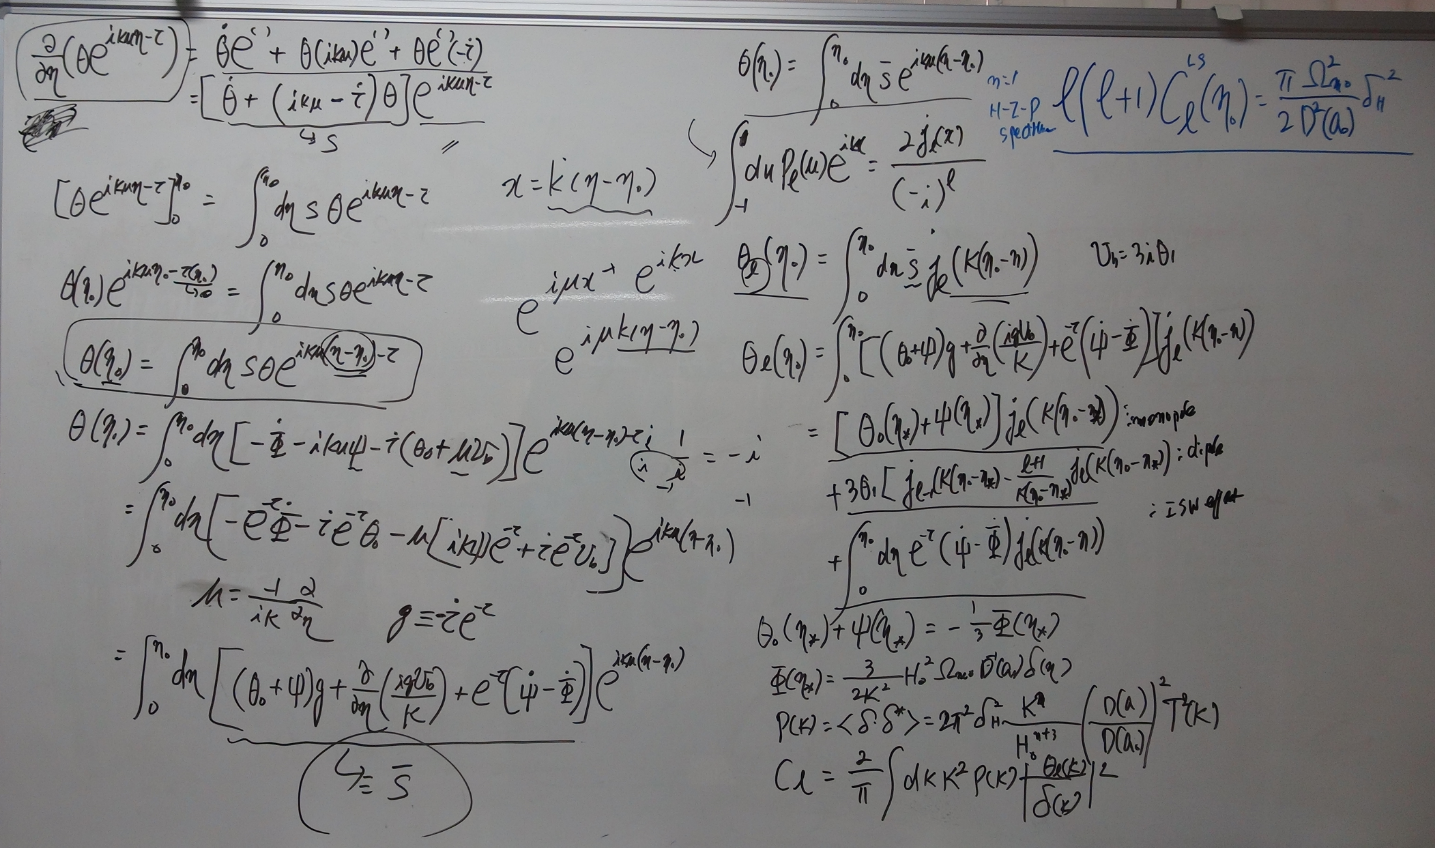 ∂/∂η (θe^{ikμη-τ}) = θ̇e^{( )} + θ(ikμ)e^{( )} + θe^{( )}(-τ̇)
= [θ̇ + (ikμ - τ̇)θ] e^{ikμη-τ}
↳ S
[θe^{ikμη-τ}]_0^{η₀} = ∫_0^{η₀} dη s θe^{ikμη-τ}
θ(η₀) e^{ikμη₀-τ(η₀)} = ∫_0^{η₀} dη s θe^{ikμη-τ}
↳ 0
θ(η₀) = ∫_0^{η₀} dη s θe^{ikμ(η-η₀)-τ}
x = k(η-η₀)
e^{iμx} → e^{ikx}
e^{iμk(η-η₀)}
θ(η₀) = ∫_0^{η₀} dη [-Φ̇ - ikμψ - τ̇(θ₀ + μv_b)] e^{ikμ(η-η₀)-τ}
i/i 1/i = -i
-1
-1
= ∫_0^{η₀} dη [-e^{-τ}Φ̇ - τ̇e^{-τ}θ₀ - μ[ikψe^{-τ} + τ̇e^{-τ}v_b]] e^{ikμ(η-η₀)}
μ = -1/ik ∂/∂η g ≡ -τ̇e^{-τ}
= ∫_0^{η₀} dη [(θ₀+ψ)g + ∂/∂η (igv_b/k) + e^{-τ}(ψ̇ - Φ̇)] e^{ikμ(η-η₀)}
↳ ≡ S̄
θ(η₀) = ∫_0^{η₀} dη s̄ e^{ikμ(η-η₀)}
∫_{-1}^{1} dμ P_l(μ) e^{iμx} = 2j_l(x)/(-i)^l
θ_l(η₀) = ∫_0^{η₀} dη s̄ j_l(k(η₀-η)) v_b = 3iθ₁
θ_l(η₀) = ∫_0^{η₀} [(θ₀+ψ)g + ∂/∂η (igv_b/k) + e^{-τ}(ψ̇-Φ̇)] j_l(k(η₀-η))
= [θ₀(η*) + ψ(η*)] j_l(k(η₀-η*)) : monopole
+ 3θ₁ [j_{l-1}(k(η₀-η*)) - l+1/k(η₀-η*) j_l(k(η₀-η*)) : dipole
+ ∫_0^{η₀} dη e^{-τ}(ψ̇ - Φ̇) j_l(k(η₀-η)) : ISW effect
θ₀(η*) + ψ(η*) = -1/3 Φ(η*)
Φ(η*) = 3/2k² H₀² Ω_{m0} D^{-1}(a₀) δ(η)
P(k) = <δ·δ*> = 2π² δ_H² kⁿ/H₀^{n+3} (D(a)/D(a₀))² T²(k)
C_l = 2/π ∫ dk k² P(k) |θ_l(k)/δ(k)|²
n=1
H-Z-P
spectrum
l(l+1) C_l^{LS}(η₀) = π Ω²_{m0}/2 D²(a₀) δ_H²